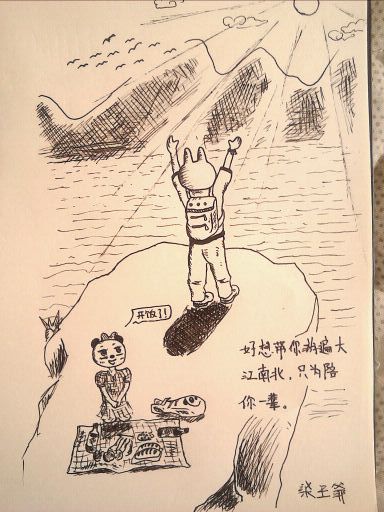 开饭了!
好想带你游遍大
江南北,只为陪
你一辈。
柒王爺